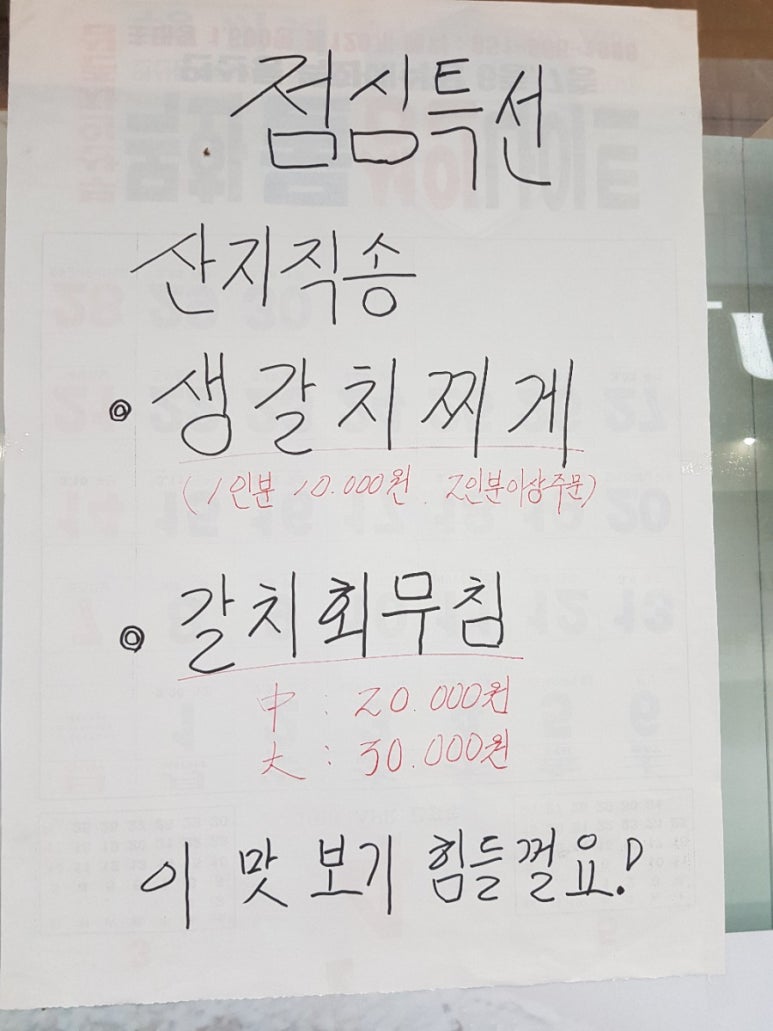 점심특선
산지직송
◎ 생갈치찌게
(1인분 10.000원. 2인분이상주문)
◎ 갈치회무침
中 : 20.000원
大 : 30.000원
이 맛 보기 힘들껄요!